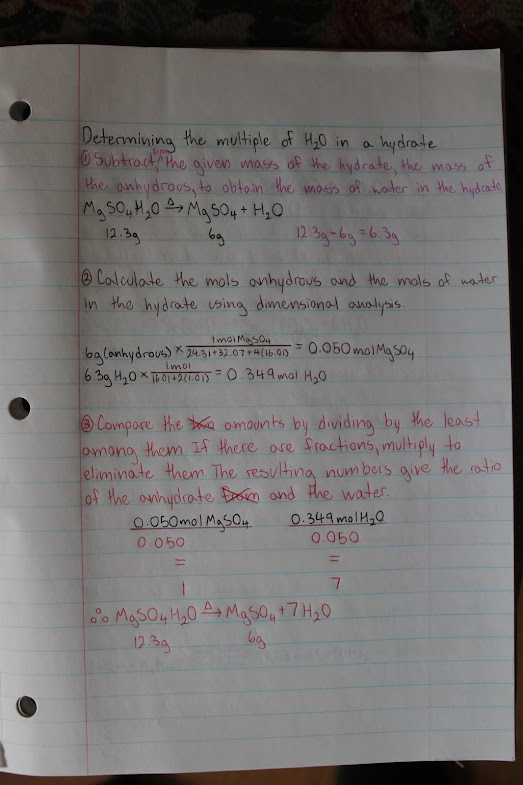 Determining the multiple of H₂O in a hydrate
① Subtract, from the given mass of the hydrate, the mass of
the anhydrous, to obtain the mass of water in the hydrate
MgSO₄H₂O →Δ MgSO₄ + H₂O
12.3g 6g 12.3g-6g=6.3g
② Calculate the mols anhydrous and the mols of water
in the hydrate using dimensional analysis.
6g (anhydrous) × 1molMgSO₄/24.31+32.07+4(16.01) = 0.050molMgSO₄
6.3g H₂O × 1mol/16.01+2(1.01) = 0.349mol H₂O
③ Compare the amounts by dividing by the least
among them If there are fractions, multiply to
eliminate them The resulting numbers give the ratio
of the anhydrate and the water.
0.050molMgSO₄ 0.349molH₂O
0.050 0.050
= =
1 7
∴ MgSO₄H₂O →Δ MgSO₄ + 7H₂O
12.3g 6g